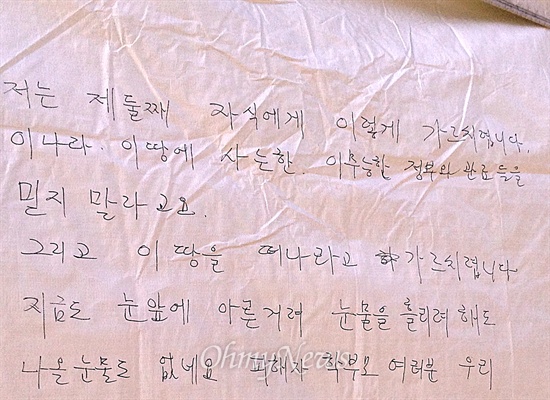 저는 제 둘째 자식에게 이렇게 가르치렵니다.
이나라. 이땅에 사는한. 이무능한 정부와 관료들을
믿지 말라고요.
그리고 이 땅을 떠나라고 가르치렵니다
지금도 눈앞에 아른거려 눈물을 흘리려 해도
나올 눈물도 없네요 피해자 학부모 여러분 우리
OhmyNews